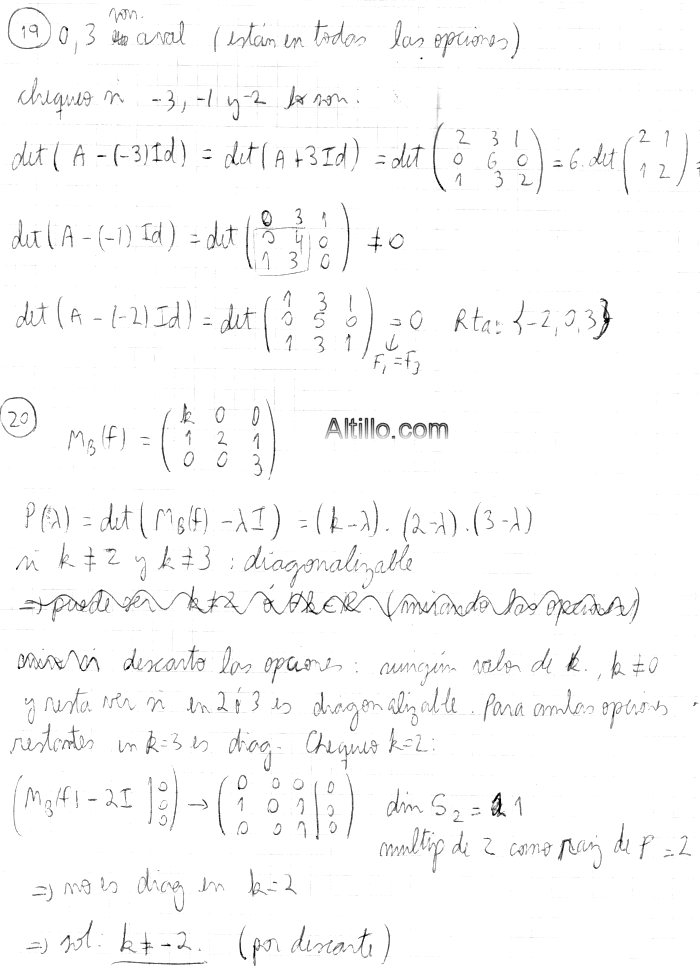 19) 0, 3 son aval (están en todas las opciones)
chequeo si -3, -1 y -2 lo son:
det(A-(-3)Id) = det(A+3Id) = det (2 3 1 / 0 6 0 / 1 3 2) = 6.det (2 1 / 1 2) ≠
det(A-(-1)Id) = det (0 3 1 / 0 4 0 / 1 3 0) ≠ 0
det(A-(-2)Id) = det (1 3 1 / 0 5 0 / 1 3 1) = 0 Rta: {-2,0,3}
↓
F₁=F₃
20) M_B(f) = (k 0 0 / 1 2 1 / 0 0 3)
Altillo.com
P(λ) = det(M_B(f) - λI) = (k-λ).(2-λ).(3-λ)
si k≠2 y k≠3 : diagonalizable
⇒ puede ser k≠2 ó ∀k∈R (mirando las opciones)
descarto las opciones: ningún valor de k., k≠0
y resta ver si en 2 ó 3 es diagonalizable. Para ambas opciones
restantes en k=3 es diag. Chequeo k=2:
(M_B(f)-2I | 0 / 0 / 0) → (0 0 0 | 0 / 1 0 1 | 0 / 0 0 1 | 0) dim S₂ = 1
multip de 2 como raiz de P = 2
⇒ no es diag en k=2
⇒ sol: k≠-2. (por descarte)